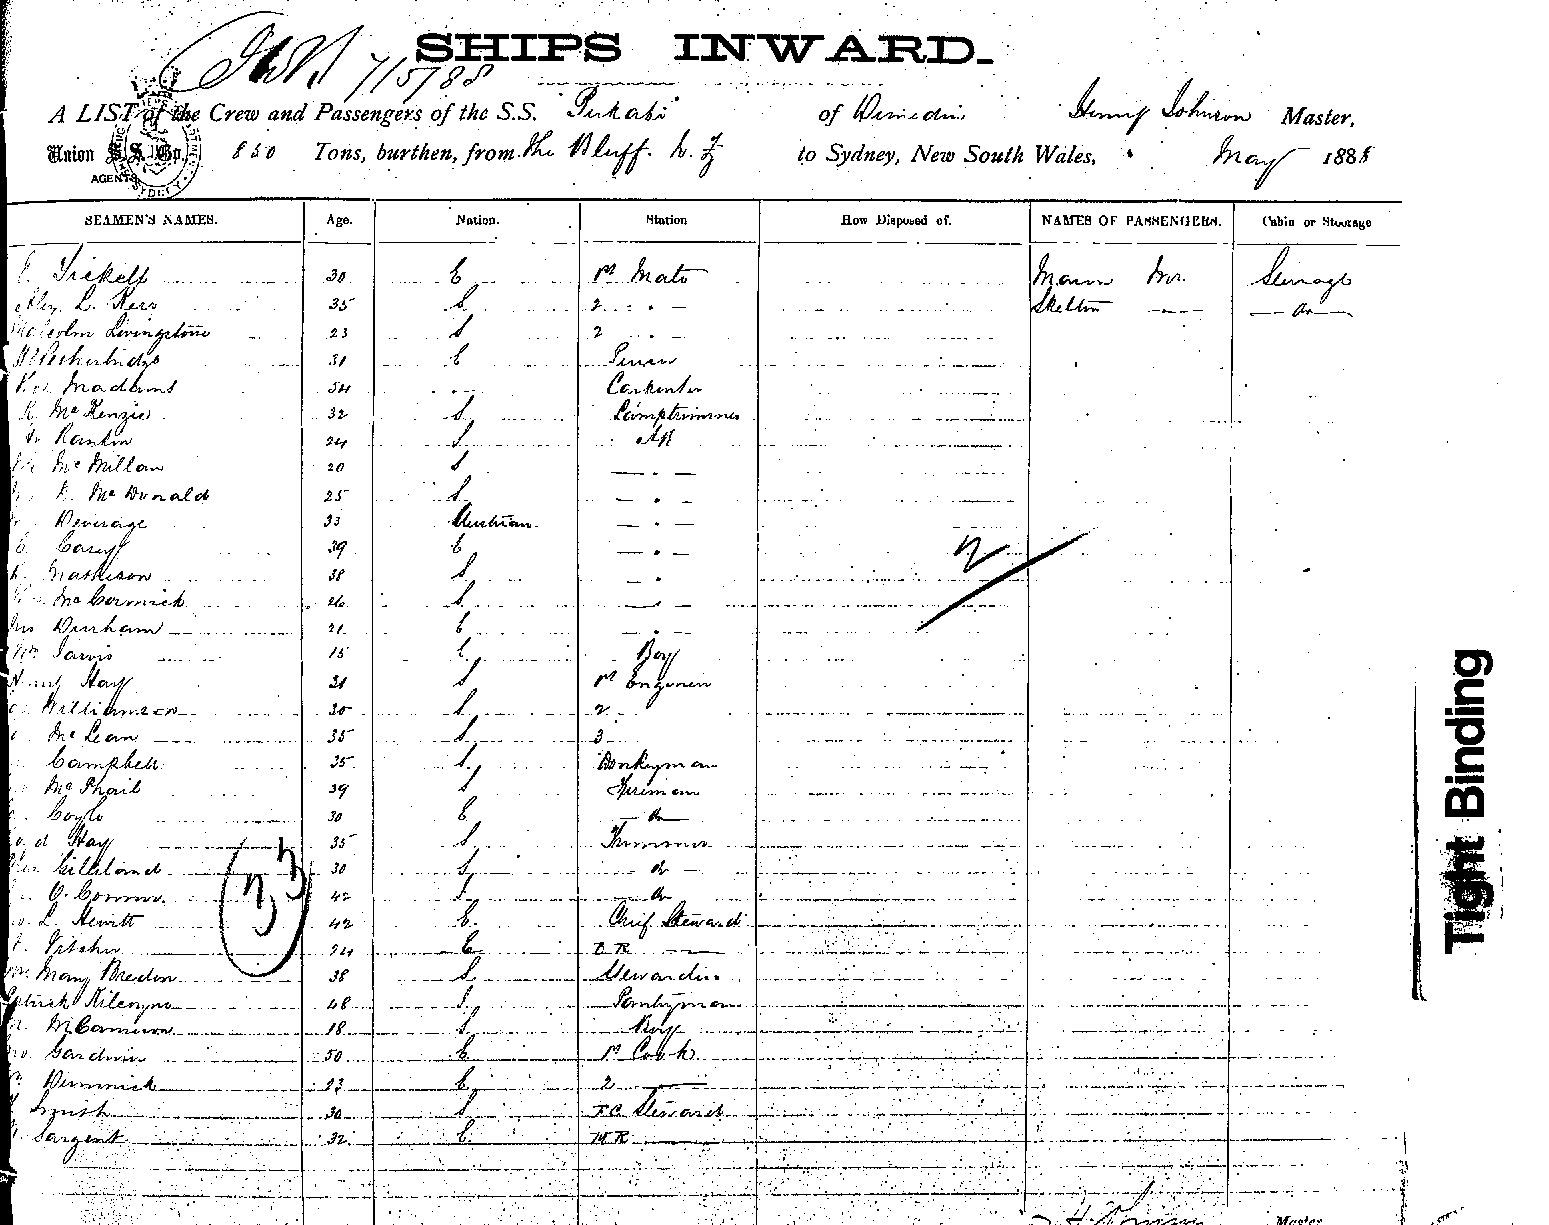 7/5/88
SHIPS INWARD.
A LIST of the Crew and Passengers of the S.S. Pukaki of Dunedin Henry Johnson Master,
Union S.S. Co., 850 Tons, burthen, from the Bluff. N. Z to Sydney, New South Wales, May 1888
AGENTS
SYDNEY
SEAMEN'S NAMES. Age. Nation. Station How Disposed of. NAMES OF PASSENGERS. Cabin or Steerage
Tickell 30 E 1st Mate Mann Mr. Steerage
Alex. L. Kerr 35 S 2 Skelton do
Malcolm Livingstone 23 S 2
31 E
Madams 54 Carpenter
McKenzie 32 S Lamptrimmer
Rankin 24 S AB
McMillan 20 S
McDonald 25 S
Beverage 33 Austrian
Carey 39 E
Mathison 38 S
McCormick 26 S
Durham 21 E
Wm Jarvis 15 E Boy
Henry Hay 31 S 1st Engineer
Williamson 30 S 2
McLean 35 S 3
Campbell 35 S Donkeyman
McPhail 39 S Fireman
Coyle 30 E do
Hay 35 S Trimmer
Gilleland 30 S do
O. Connor 42 S do
L. Hewitt 42 E Chief Steward
Pitcher 24 E
Mary Bredin 38 S Stewardess
Patrick Kilcoyne 48 S Pantryman
McCameron 18 S Boy
Gardner 50 E 1st Cook
Dimmick 23 E 2
Smith 30 S F.C. Steward
Sargent 32 E M R
Master
Tight Binding